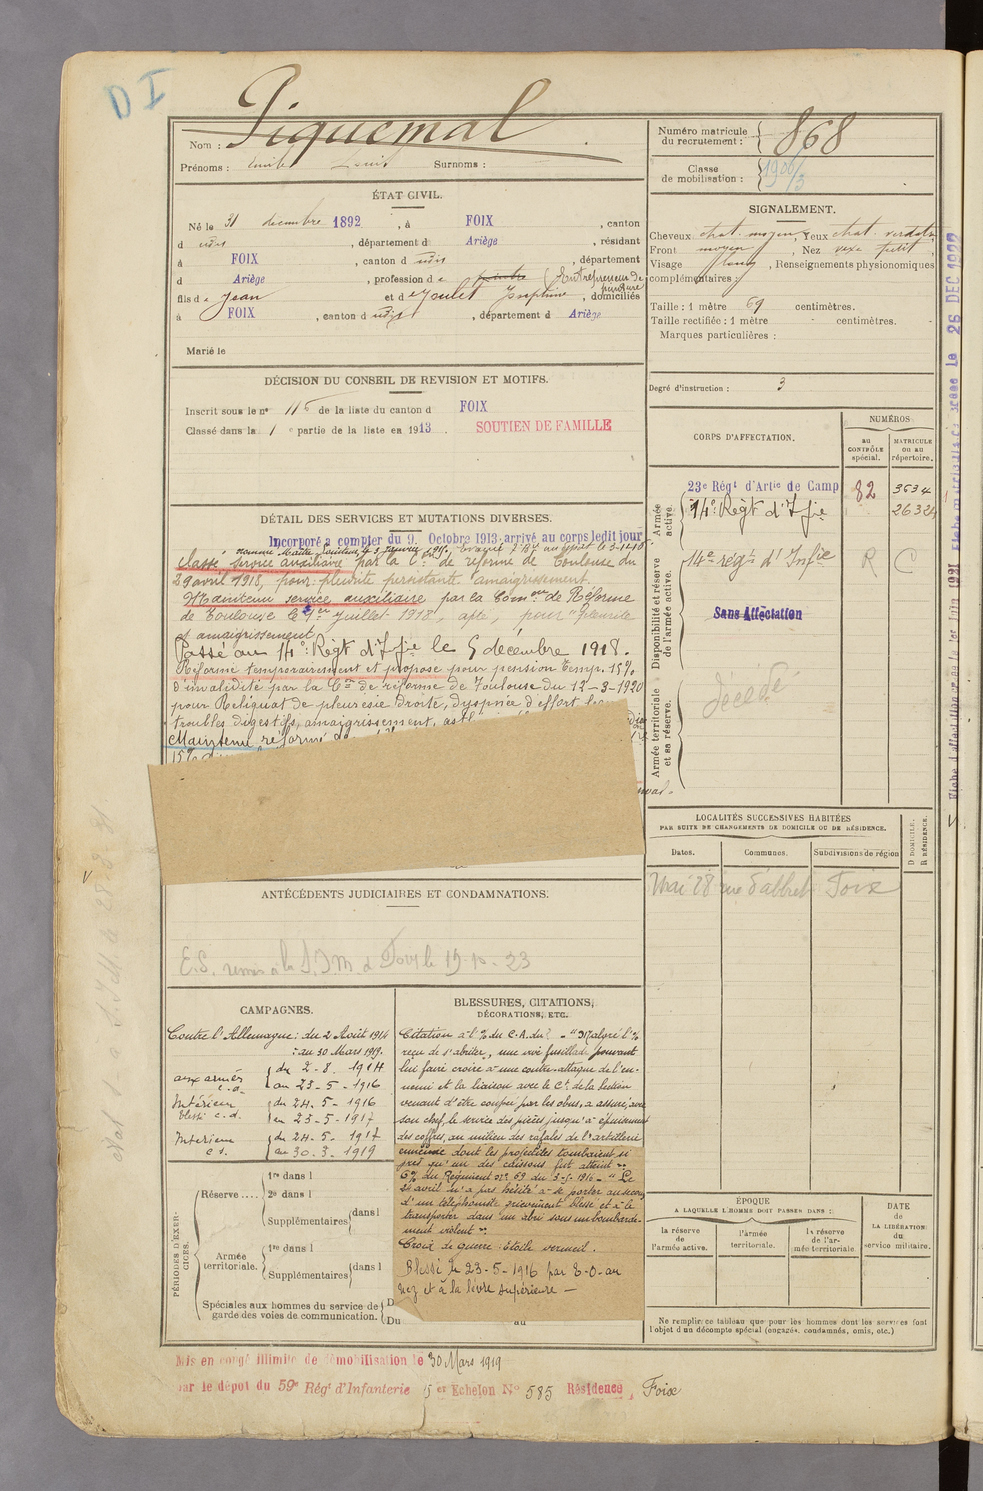 D I
Nom : Piquemal
Prénoms : Emile Louis Surnoms :
Numéro matricule du recrutement : 868
Classe de mobilisation : 1906/3
ÉTAT CIVIL.
Né le 31 décembre 1892, à FOIX, canton
d udis, département d Ariège, résidant
à FOIX, canton d udis, département
d Ariège, profession de peintre (Entrepreneur de peinture
fils de Jean et de Joulet Josephine, domiciliés
à FOIX, canton d udis, département d Ariège
Marié le
SIGNALEMENT.
Cheveux chat. moyen, Yeux chat. verdatre
Front moyen, Nez vexe petit,
Visage long, Renseignements physionomiques
complémentaires :
Taille : 1 mètre 69 centimètres.
Taille rectifiée : 1 mètre - centimètres.
Marques particulières :
Degré d'instruction : 3
DÉCISION DU CONSEIL DE REVISION ET MOTIFS.
Inscrit sous le nº 116 de la liste du canton d FOIX
Classé dans la 1 e partie de la liste en 1913. SOUTIEN DE FAMILLE
DÉTAIL DES SERVICES ET MUTATIONS DIVERSES.
Incorporé a compter du 9 Octobre 1913 arrivé au corps ledit jour
nommé Maître Pointeur le 3 janvier 1915.
Classé service auxiliaire par la C on de réforme de Toulouse du
29 avril 1918, pour : pleurite persistante. amaigrissement.
Maintenu service auxiliaire par la Com on de Réforme
de Toulouse le 1er Juillet 1918, apte, pour "pleurite
et amaigrissement
Passé au 14e Régt d'Infie le 5 décembre 1918.
Réformé temporairement et proposé pour pension temp. 15%
d'invalidité par la Con de réforme de Toulouse du 12-3-1920
pour Reliquat de pleurésie droite, dyspnée d'effort
troubles digestifs, amaigrissement,
Maintenu réformé
15%
CORPS D'AFFECTATION.
NUMÉROS
au CONTRÔLE spécial.
MATRICULE ou au répertoire.
Armée active.
23e Régt d'Artie de Camp 82 3634
14e Régt d'Infie 26324
Disponibilité et réserve de l'armée active.
14e régt d'Infie R C
Sans Affectation
Armée territoriale et sa réserve.
décédé
LOCALITÉS SUCCESSIVES HABITÉES
PAR SUITE DE CHANGEMENTS DE DOMICILE OU DE RÉSIDENCE.
Dates. Communes. Subdivisions de région
D DOMICILE.
R RÉSIDENCE.
Mai 28 rue d'albret Foix
ANTÉCÉDENTS JUDICIAIRES ET CONDAMNATIONS.
E.S. remis à la S.I.M. à Foix le 15-10-23
CAMPAGNES.
Contre l'Allemagne : du 2 Août 1914
: au 30 Mars 1919.
aux armées c.d. du 2-8. 1914
au 23-5-1916
Intérieur blessé c.d. du 24. 5-1916
au 23-5-1917
Intérieur c s. du 24-5. 1917
au 30. 3. 1919
BLESSURES, CITATIONS,
DÉCORATIONS, ETC.
Citation à l'% du C.A. du? "Malgré l'%
reçu de s'abriter, une vive fusillade pouvant
lui faire croire à une contre-attaque de l'en-
nemi et la liaison avec le Ct de la section
venant d'être coupée par les obus, a assuré, avec
son chef, le service des pièces jusqu'à épuisement
des coffres, au milieu des rafales de l'artillerie
ennemie dont les projectiles tombaient si
près qu'un des caissons fut atteint".
C% du Régiment nº 69 du 3-5-1916 - "Le
24 avril n'a pas hésité à se porter au secours
d'un téléphoniste grièvement blessé et à le
transporter dans un abri sous un bombarde-
ment violent".
Croix de guerre : Étoile vermeil.
Blessé le 23-5-1916 par E-O-au
nez et à la lèvre supérieure —
PÉRIODES D'EXERCICES.
Réserve.... 1re dans l
2e dans l
Supplémentaires dans l
Armée territoriale. 1re dans l
Supplémentaires dans l
Spéciales aux hommes du service de garde des voies de communication.
Du au
ÉPOQUE
A LAQUELLE L'HOMME DOIT PASSER DANS :
la réserve de l'armée active.
l'armée territoriale.
la réserve de l'armée territoriale.
DATE de LA LIBÉRATION: du service militaire.
Ne remplir ce tableau que pour les hommes dont les services font
l'objet d'un décompte spécial (engagés, condamnés, omis, etc.)
Mis en congé illimité de démobilisation le 30 Mars 1919
par le dépôt du 59e Régt d'Infanterie 5 er Echelon Nº 585 Résidence, Foix